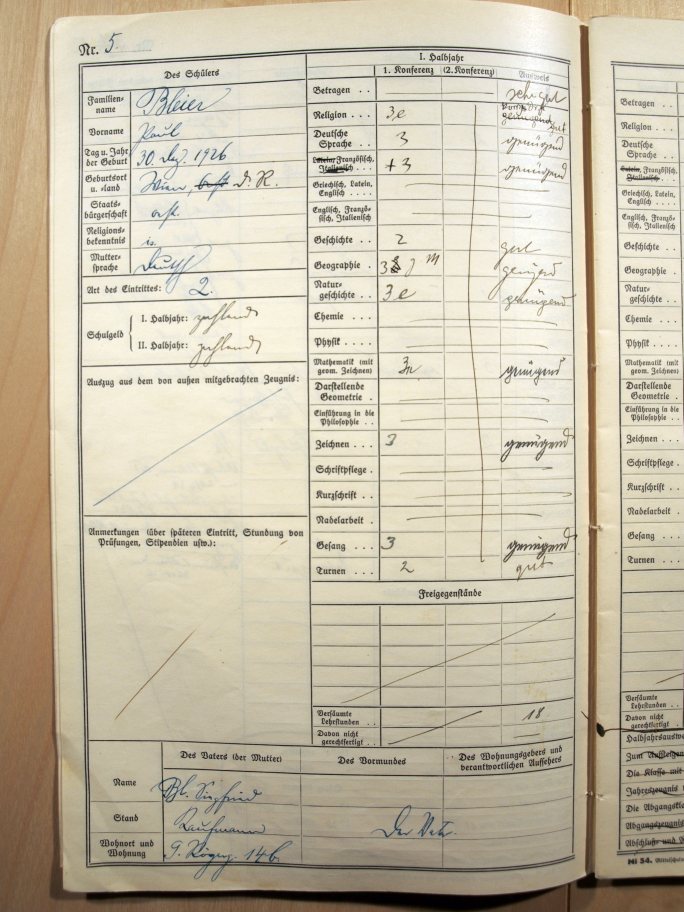 Nr. 5.
Des Schülers
Familien-
name Bleier
Vorname Paul
Tag u. Jahr
der Geburt 30. Dez. 1926
Geburtsort
u. -land Wien, öst. D. R.
Staats-
bürgerschaft öst.
Religions-
bekenntnis is.
Mutter-
sprache Deutsch
Art des Eintrittes: 2.
Schulgeld
I. Halbjahr: zahlend
II. Halbjahr: zahlend
Auszug aus dem von außen mitgebrachten Zeugnis:
Anmerkungen (über späteren Eintritt, Stundung von
Prüfungen, Stipendien usw.):
I. Halbjahr
1. Konferenz (2. Konferenz) Ausweis
Betragen . . sehr gut
Religion . . . 3e genügend gut
Deutsche
Sprache . . 3 genügend
Latein, Französisch,
Italienisch . . . +3 genügend
Griechisch, Latein,
Englisch . . . .
Englisch, Franzö-
sisch, Italienisch
Geschichte . . 2 gut
Geographie . 3 genügend
Natur-
geschichte . . 3e genügend
Chemie . . .
Physik . . .
Mathematik (mit
geom. Zeichnen) 3 genügend
Darstellende
Geometrie .
Einführung in die
Philosophie . .
Zeichnen . . . 3 genügend
Schriftpflege .
Kurzschrift . . .
Nadelarbeit .
Gesang . . . 3 genügend
Turnen . . . . 2 gut
Freigegenstände
Versäumte
Lehrstunden . . 18
Davon nicht
gerechtfertigt) . .
Des Vaters (der Mutter) Des Vormundes Des Wohnungsgebers und
verantwortlichen Aufsehers
Name Bl. Siegfried
Stand Kaufmann Der Vater.
Wohnort und
Wohnung 14b.
Betragen . .
Religion . . .
Deutsche
Sprache . .
Latein, Französisch,
Italienisch . . .
Griechisch, Latein,
Englisch . . . .
Englisch, Franzö-
sisch, Italienisch
Geschichte . .
Geographie .
Natur-
geschichte . .
Chemie . . .
Physik . . .
Mathematik (mit
geom. Zeichnen)
Darstellende
Geometrie .
Einführung in die
Philosophie . .
Zeichnen . . .
Schriftpflege
Kurzschrift . .
Nadelarbeit .
Gesang . . .
Turnen . . .
Versäumte
Lehrstunden . .
Davon nicht
gerechtfertigt) . .
Halbjahrsauswe
Zum Aufsteigen
Die Klasse mit
Jahreszeugnis
Die Abgangskl
Abgangszeugnis
Abschluß- und
MI 54.